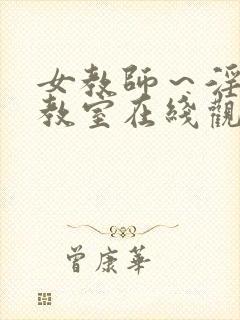 女教師～淫
教室在綫觀
曾康華